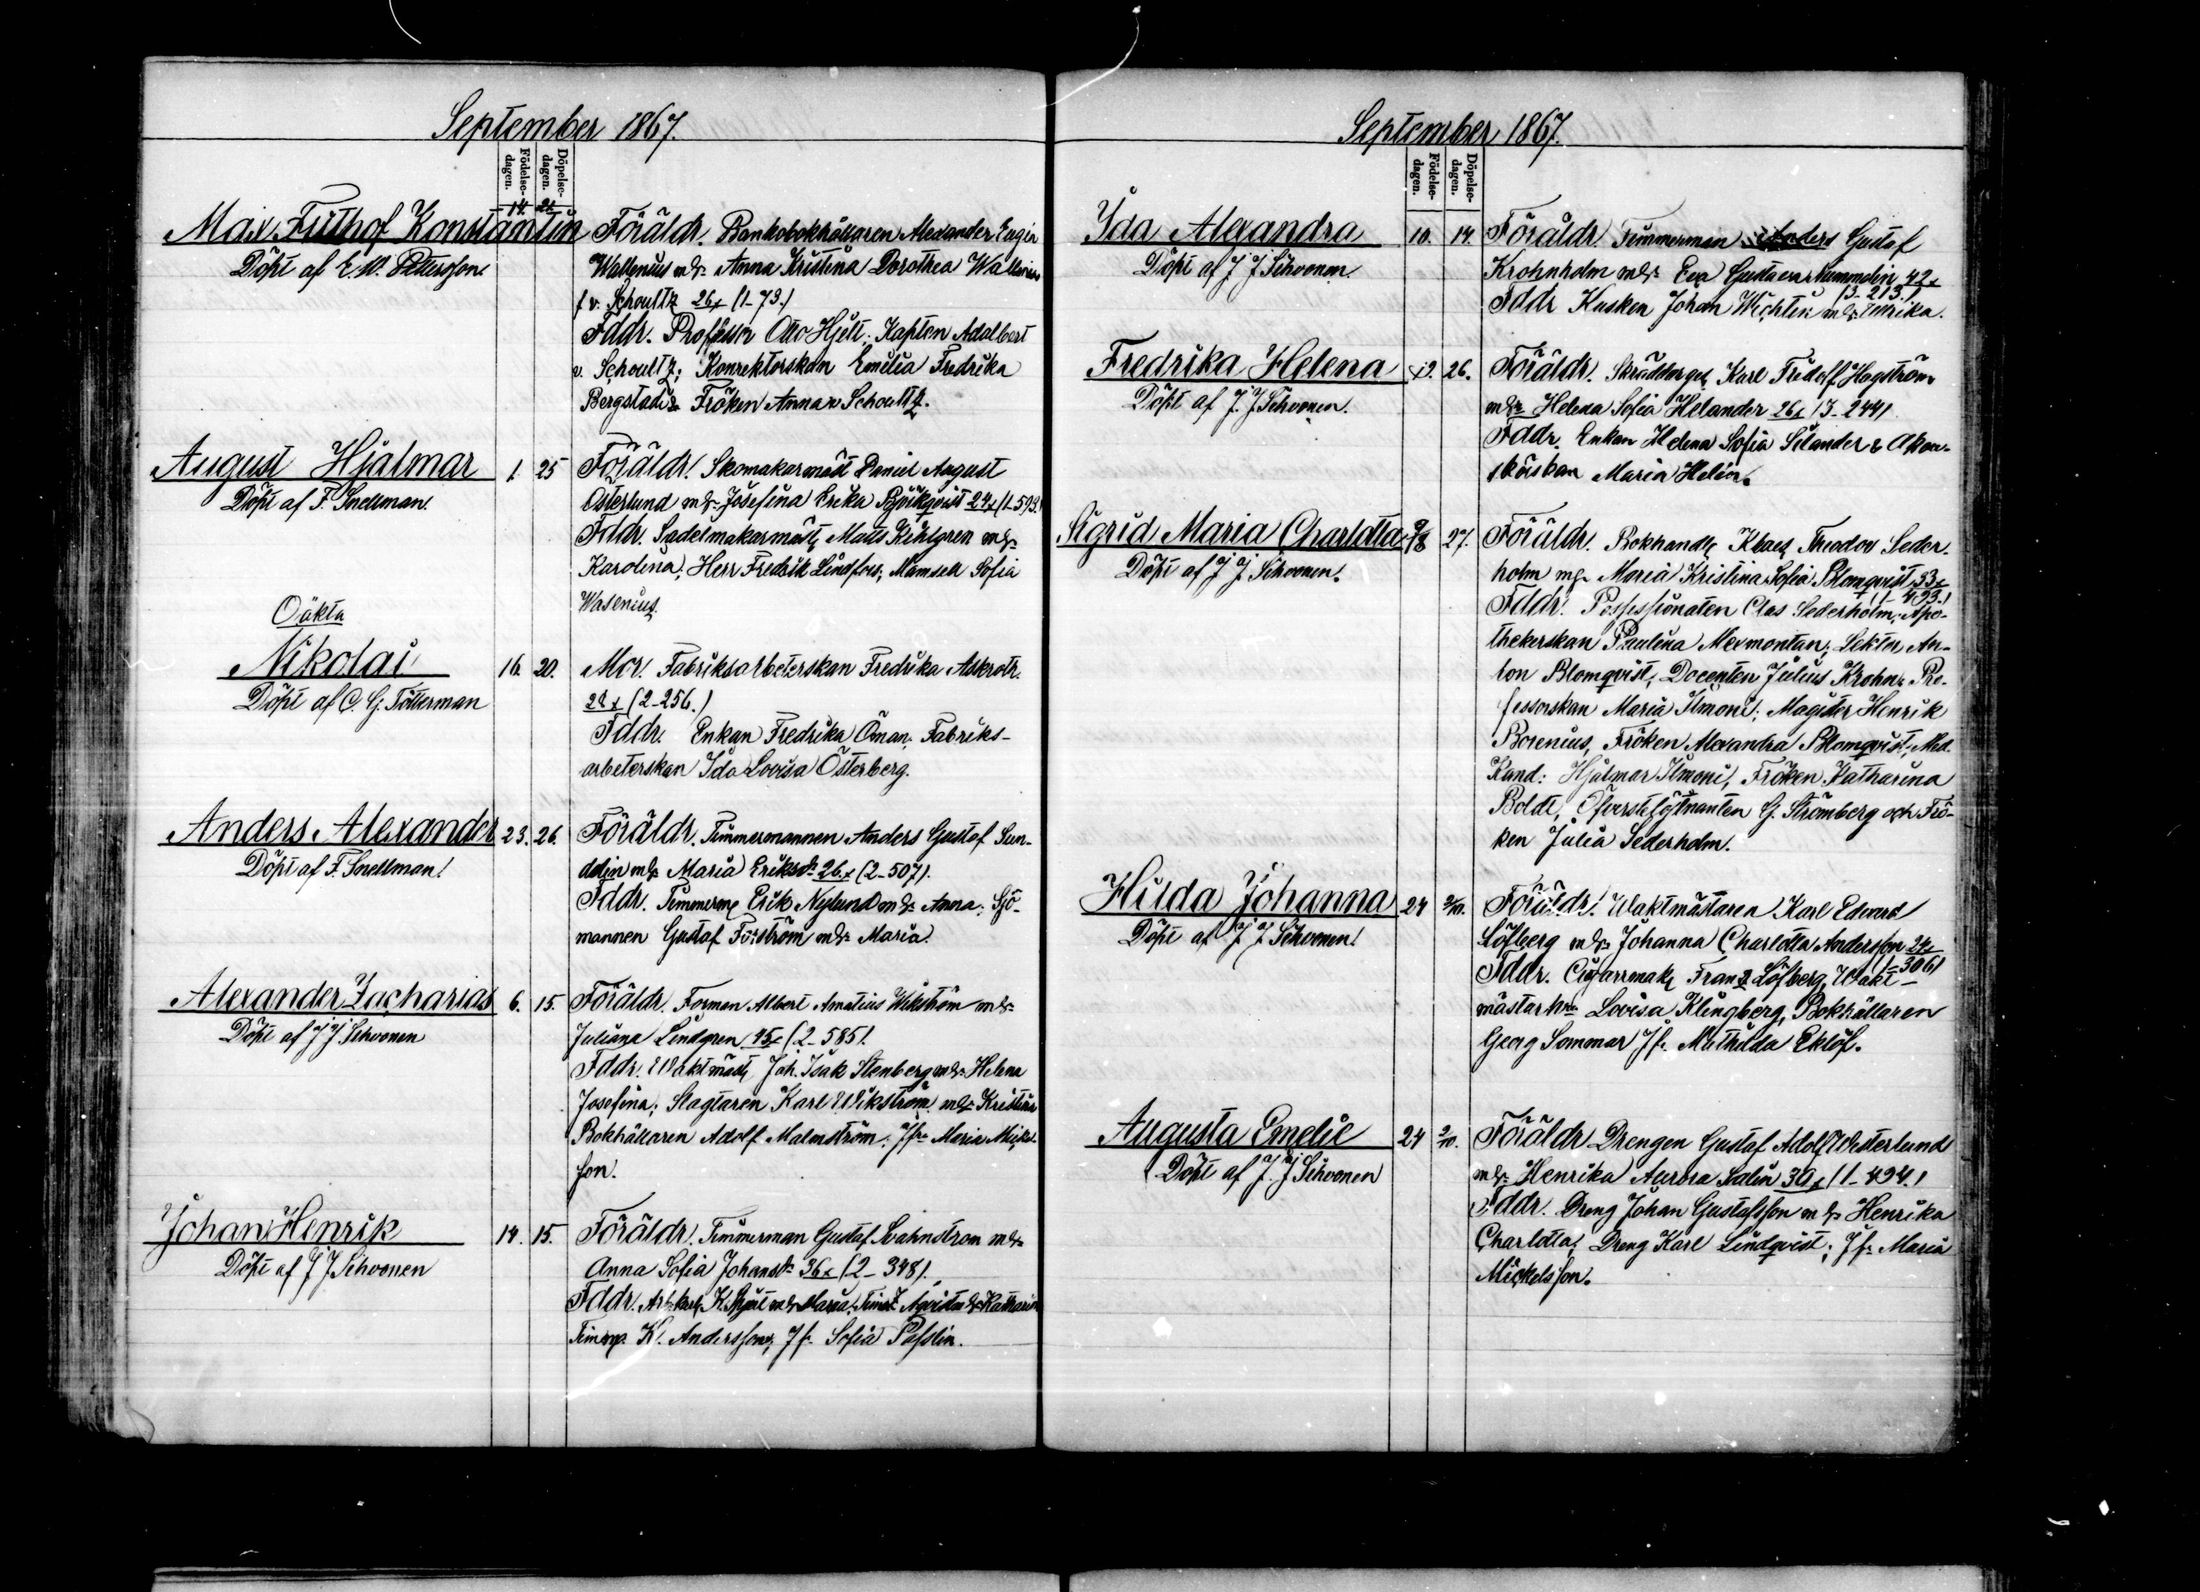 September 1867.
Födelse-dagen. Döpelse-dagen.
Max Frithof Konstantin 14. 21
Döpt af E. W. Pettersson
Föräldr. Bankobokhållaren Alexander Eugen
Wallenius m. h. Anna Kristina Dorothea Wallenius
f. v. Schoultz 26 (1-73.)
Fddr. Professor Otto Hjelt; Kapten Adalbert
v. Schoultz; Konrektorskan Emilia Fredrika
Bergstadi & Fröken Anna v Schoultz.
August Hjalmar 1. 25
Döpt af F. Snellman.
Föräldr. Skomakarmäst Daniel August
Österlund m. h. Josefina Erika Björkqvist 24 (1-593)
Fddr. Sadelmakarmäst. Matts Kihlgren m. h.
Karolina; Herr Fredrik Lindfors, Mamsell Sofia
Wasenius
Oäkta
Nikolai 16. 20.
Döpt af C. G. Tötterman
Mor. Fabriksarbeterskan Fredrika Askroth.
28 (2-256.)
Fddr. Enkan Fredrika Öman; Fabriks-
arbeterskan Ida Lovisa Österberg.
Anders Alexander 23. 26.
Döpt af F. Snellman!
Föräldr. Timmermannen Anders Gustaf Sun-
ddin m. h. Maria Eriksdr 26 (2-507).
Fddr. Timmerm Erik Nylund m. h. Anna; Sjö-
mannen Gustaf Forström m. h. Maria.
Alexander Zacharias 6. 15.
Döpt af J J Sihvonen
Föräldr. Forman Albert Amatius Wikström m. h.
Juliana Lindgren 45 (2-585).
Fddr. Waktmäst. Joh. Isak Stenberg m. h. Helena
Josefina; Slagtaren Karl Wikström m. h. Kristina
Bokhållaren Adolf Malmström; Jfr. Maria Mickel-
son.
Johan Henrik 14. 15.
Döpt af J J Sihvonen
Föräldr. Timmerman Gustaf Svahnström m. h.
Anna Sofia Johansdr 36 (2-348).
Fddr. Arb. karl K. m. h. Maria; m. h. Katharin
Timm. K. Andersson; Jfr. Sofia Passlin.
September 1867.
Födelse-dagen. Döpelse-dagen.
Ida Alexandra 10. 14.
Döpt af J J Sihvonen.
Föräldr Timmerman Anders Gustaf
Krohnholm m. h. Eva Gustava Hummelin 42
(3-213.)
Fddr Kusken Johan Wichtin m. h. Ulrika.
Fredrika Helena 19. 26.
Döpt af J. J Sihvonen.
Föräldr. Skräddarges. Karl Fridolf Hogström
m. h. Helena Sofia Helander 26 (3-244)
Fddr. Enkan Helena Sofia Silander &
Maria Helin.
Sigrid Maria Charlotta 9/8 27.
Döpt af J J Sihvonen.
Föräldr. Bokhandl. Klaes Theodor Seder-
holm m. h. Maria Kristina Sofia Blomqvist 33
(1-493.)
Fddr. Possessionaten Clas Sederholm; Apo-
thekerskan Paulina Mexmontan; Lektor An-
ton Blomqvist, Docenten Julius Krohn; Pro-
fessorskan Maria Ilmoni; Magister Henrik
Borenius, Fröken Alexandra Blomqvist; Med.
Kand: Hjalmar Ilmoni, Fröken Katharina
Boldt, Öfverstelöjtnanten G. Strömberg och Frö-
ken Julia Sederholm.
Hilda Johanna 24 2/10.
Döpt af J J Sihvonen!
Föräldr. Waktmästaren Karl Edvard
Löfberg m. h. Johanna Charlotta Andersson 24
(1-306)
Fddr. Cigarrmak. Franz Löfberg, Wakt-
mästarhn Lovisa Klingberg, Bokhållaren
Georg Sommar Jfr. Mathilda Eklöf.
Augusta Emelie 24 2/10.
Döpt af J. J Sihvonen
Föräldr Drengen Gustaf Adolf Westerlund
m. h. Henrika Aurora Salin 30 (1-494.)
Fddr. Dreng Johan Gustafsson m. h. Henrika
Charlotta; Dreng Karl Lindqvist; Jfr. Maria
Mickelsson.